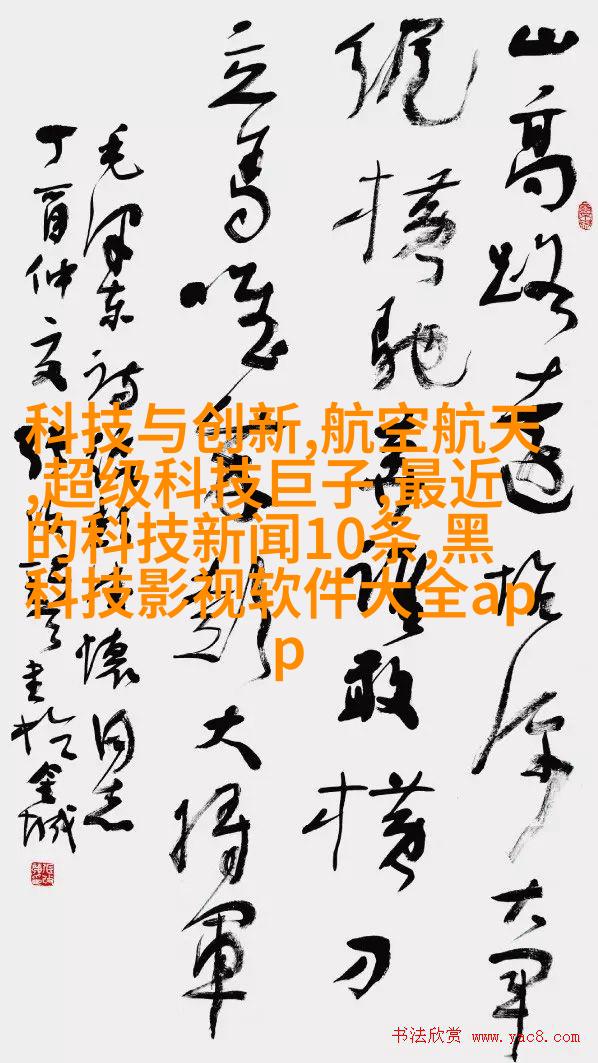 山高路遠坑深大军
纵横驰奔谁敢横刀
立馬唯我彭大将軍
毛泽东诗懷同志
丁酉仲夏張書於金城
科技与创新,航空航天
,超级科技巨子,最近
的科技新闻10条,黑
科技影视软件大全ap
p
书法欣赏 www.yac8.com